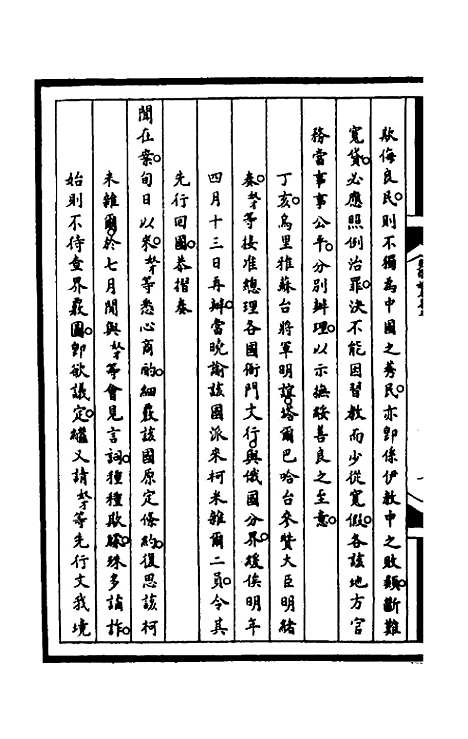 欺侮良民。則不獨為中國之莠民。亦卽係伊教中之敗類。斷難
寬貸。必應照例治罪。決不能因習教而少從寬假。各該地方官
務當事事公平。分別辦理。以示撫綏善良之至意。
丁亥。烏里雅蘇台將軍明誼。塔爾巴哈台參贊大臣明緒
奏。奴才等接准總理各國衙門文行。與俄國分界。緩俟明年
四月十三日再辦。當曉諭該國派來柯米雜爾二員。令其
先行回國。恭摺奏
聞在案。旬日以來。奴才等悉心商酌。細覈該國原定條約。復思該柯
米雜爾。於七月間與奴才等會見言詞。種種欺矇。殊多譎詐。
始則不待查界覈圖。卽欲議定。繼又請奴才等先行文我境